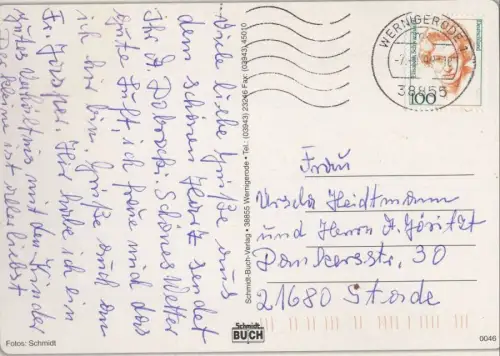 Viele liebe Grüße aus
dem schönen Harz sendet
Ihr A. Dobroski. Schönes Wetter
gute Luft, ich freue mich das
ich hier bin. Grüße auch an
Fr. Jürsper. Hier habe ich ein
gutes Verhältnis mit den Kinder
Der Kleine ist allerliebst
Fotos: Schmidt
Schmidt-Buch-Verlag • 38855 Wernigerode • Tel.: (03943) 23246 Fax: (03943) 45010
Schmidt
BUCH
WERNIGERODE 1
38855
Deutschland
100
Frau
Ursla Heidtmann
und Herrn A.
Pankersstr. 30
21680 Stade
0046